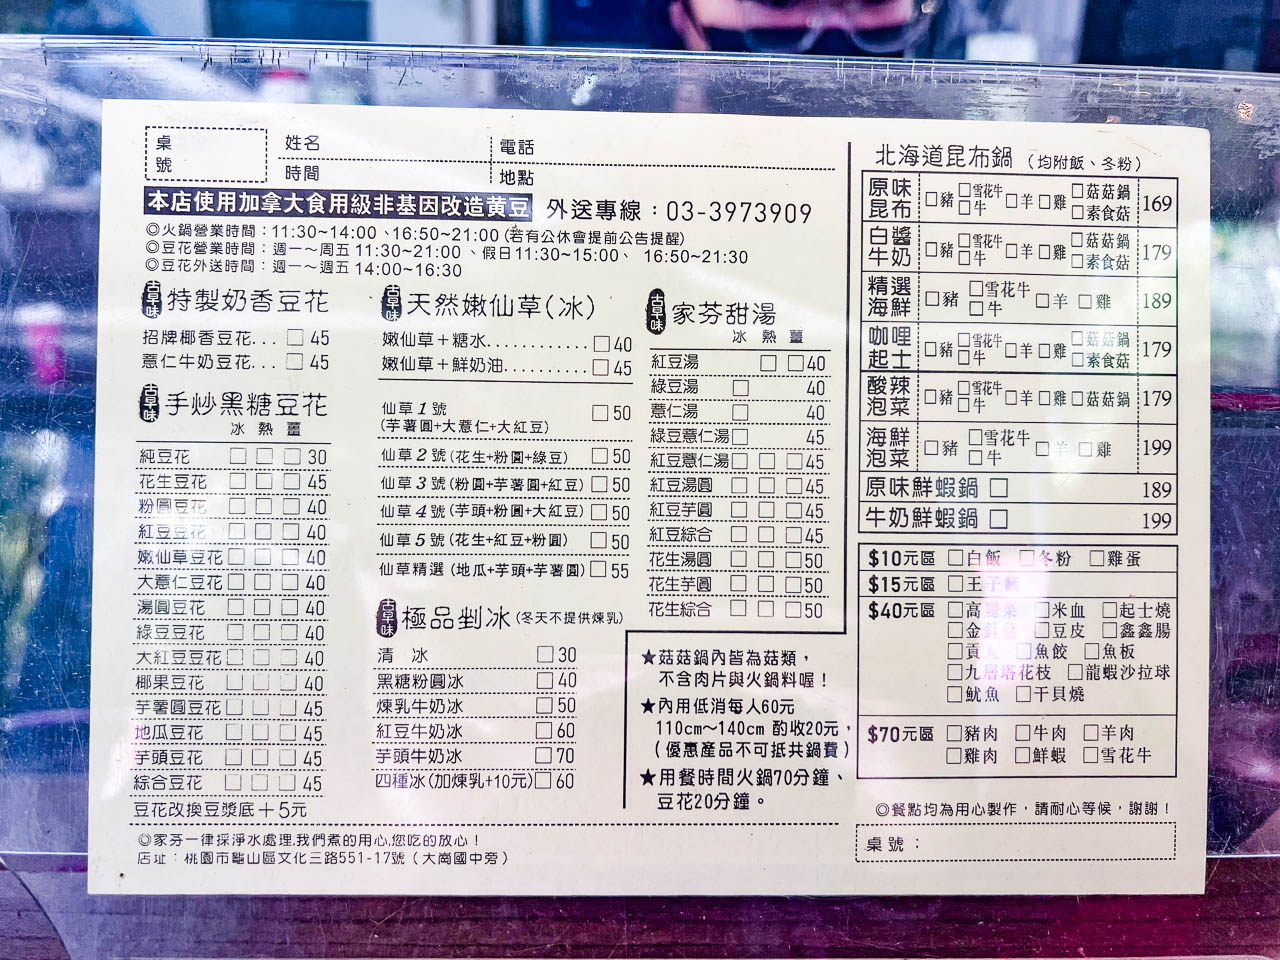 桌號
姓名
電話
時間
地點
本店使用加拿大食用級非基因改造黃豆
外送專線：03-3973909
◎火鍋營業時間：11:30~14:00、16:50~21:00(若有公休會提前公告提醒)
◎豆花營業時間：週一～周五 11:30~21:00、假日11:30~15:00、 16:50~21:30
◎豆花外送時間：週一～週五 14:00~16:30
古早味 特製奶香豆花
招牌椰香豆花... □ 45
薏仁牛奶豆花... □ 45
古早味 手炒黑糖豆花
冰 熱 薑
純豆花 □ □ □ 30
花生豆花 □ □ □ 45
粉圓豆花 □ □ □ 40
紅豆豆花 □ □ □ 40
嫩仙草豆花 □ □ □ 40
大薏仁豆花 □ □ □ 40
湯圓豆花 □ □ □ 40
綠豆豆花 □ □ □ 40
大紅豆豆花 □ □ □ 40
椰果豆花 □ □ □ 40
芋薯圓豆花 □ □ □ 45
地瓜豆花 □ □ □ 45
芋頭豆花 □ □ □ 45
綜合豆花 □ □ □ 45
豆花改換豆漿底＋5元
古早味 天然嫩仙草(冰)
嫩仙草＋糖水............ □ 40
嫩仙草＋鮮奶油.......... □ 45
仙草1號 □ 50
(芋薯圓+大薏仁+大紅豆)
仙草2號(花生+粉圓+綠豆) □ 50
仙草3號(粉圓+芋薯圓+紅豆) □ 50
仙草4號(芋頭+粉圓+大紅豆) □ 50
仙草5號(花生+紅豆+粉圓) □ 50
仙草精選(地瓜+芋頭+芋薯圓) □ 55
古早味 極品剉冰(冬天不提供煉乳)
清 冰 □ 30
黑糖粉圓冰 □ 40
煉乳牛奶冰 □ 50
紅豆牛奶冰 □ 60
芋頭牛奶冰 □ 70
四種冰(加煉乳+10元) □ 60
古早味 家芬甜湯
冰 熱 薑
紅豆湯 □ □ 40
綠豆湯 □ 40
薏仁湯 □ 40
綠豆薏仁湯 □ 45
紅豆薏仁湯 □ □ □ 45
紅豆湯圓 □ □ □ 45
紅豆芋圓 □ □ □ 45
紅豆綜合 □ □ □ 45
花生湯圓 □ □ □ 50
花生芋圓 □ □ □ 50
花生綜合 □ □ □ 50
★菇菇鍋內皆為菇類，
不含肉片與火鍋料喔！
★內用低消每人60元
110cm～140cm 酌收20元，
(優惠產品不可抵共鍋費)
★用餐時間火鍋70分鐘、
豆花20分鐘。
北海道昆布鍋 (均附飯、冬粉)
原味昆布 □豬 □雪花牛 □牛 □羊 □雞 □菇菇鍋 □素食菇 169
白醬牛奶 □豬 □雪花牛 □牛 □羊 □雞 □菇菇鍋 □素食菇 179
精選海鮮 □豬 □雪花牛 □牛 □羊 □雞 189
咖哩起士 □豬 □雪花牛 □牛 □羊 □雞 □菇菇鍋 □素食菇 179
酸辣泡菜 □豬 □雪花牛 □牛 □羊 □雞 □菇菇鍋 179
海鮮泡菜 □豬 □雪花牛 □牛 □羊 □雞 199
原味鮮蝦鍋 □ 189
牛奶鮮蝦鍋 □ 199
$10元區 □白飯 □冬粉 □雞蛋
$15元區 □王子麵
$40元區 □高麗菜 □米血 □起士燒
□金針菇 □豆皮 □鑫鑫腸
□貢丸 □魚餃 □魚板
□九層塔花枝 □龍蝦沙拉球
□魷魚 □干貝燒
$70元區 □豬肉 □牛肉 □羊肉
□雞肉 □鮮蝦 □雪花牛
◎餐點均為用心製作，請耐心等候，謝謝！
桌號：
◎家芬一律採淨水處理,我們煮的用心,您吃的放心！
店址：桃園市龜山區文化三路551-17號（大崗國中旁）